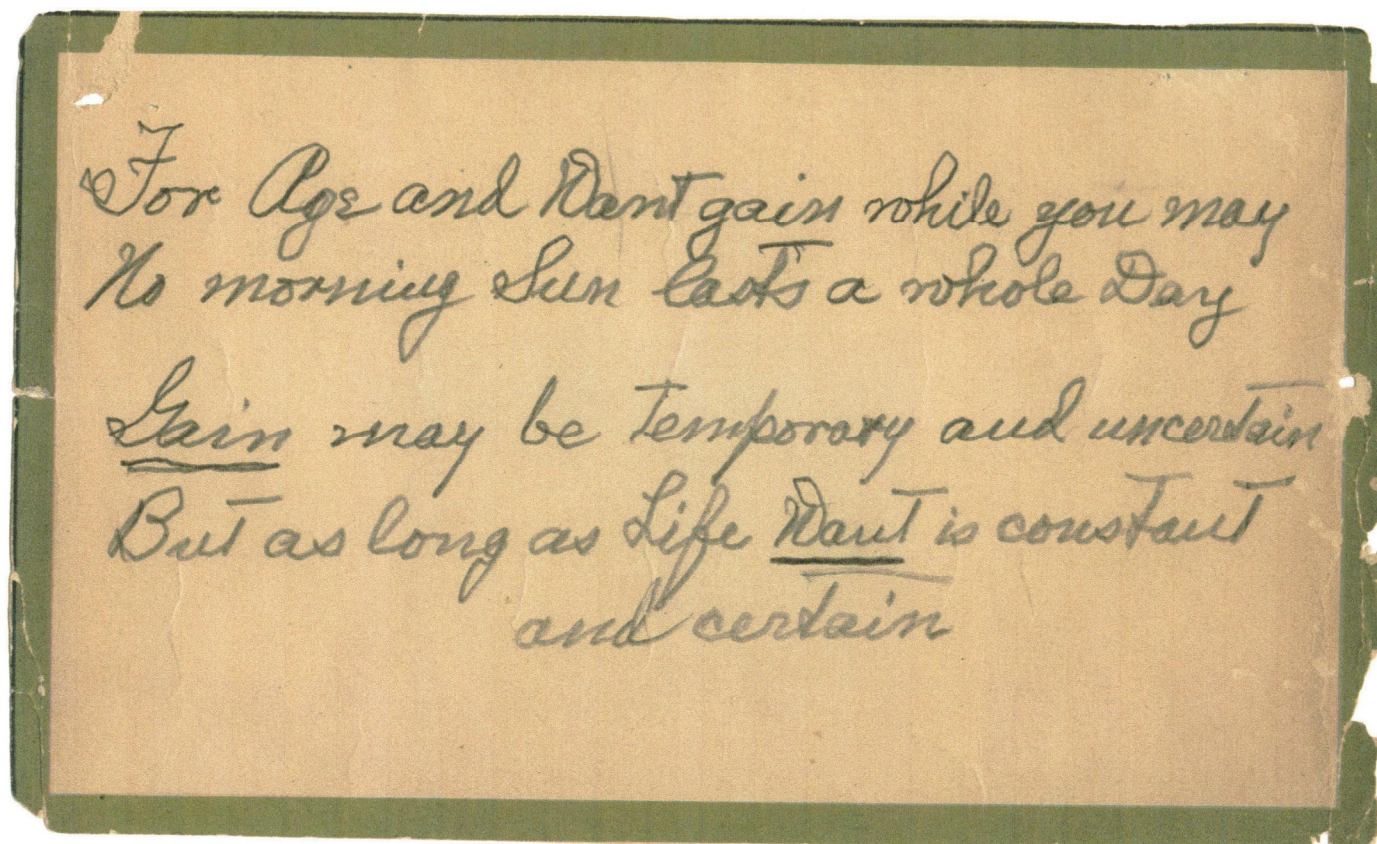 For Age and Want gain while you may
No morning Sun lasts a whole Day
Gain may be temporary and uncertain
But as long as Life Want is constant
and certain